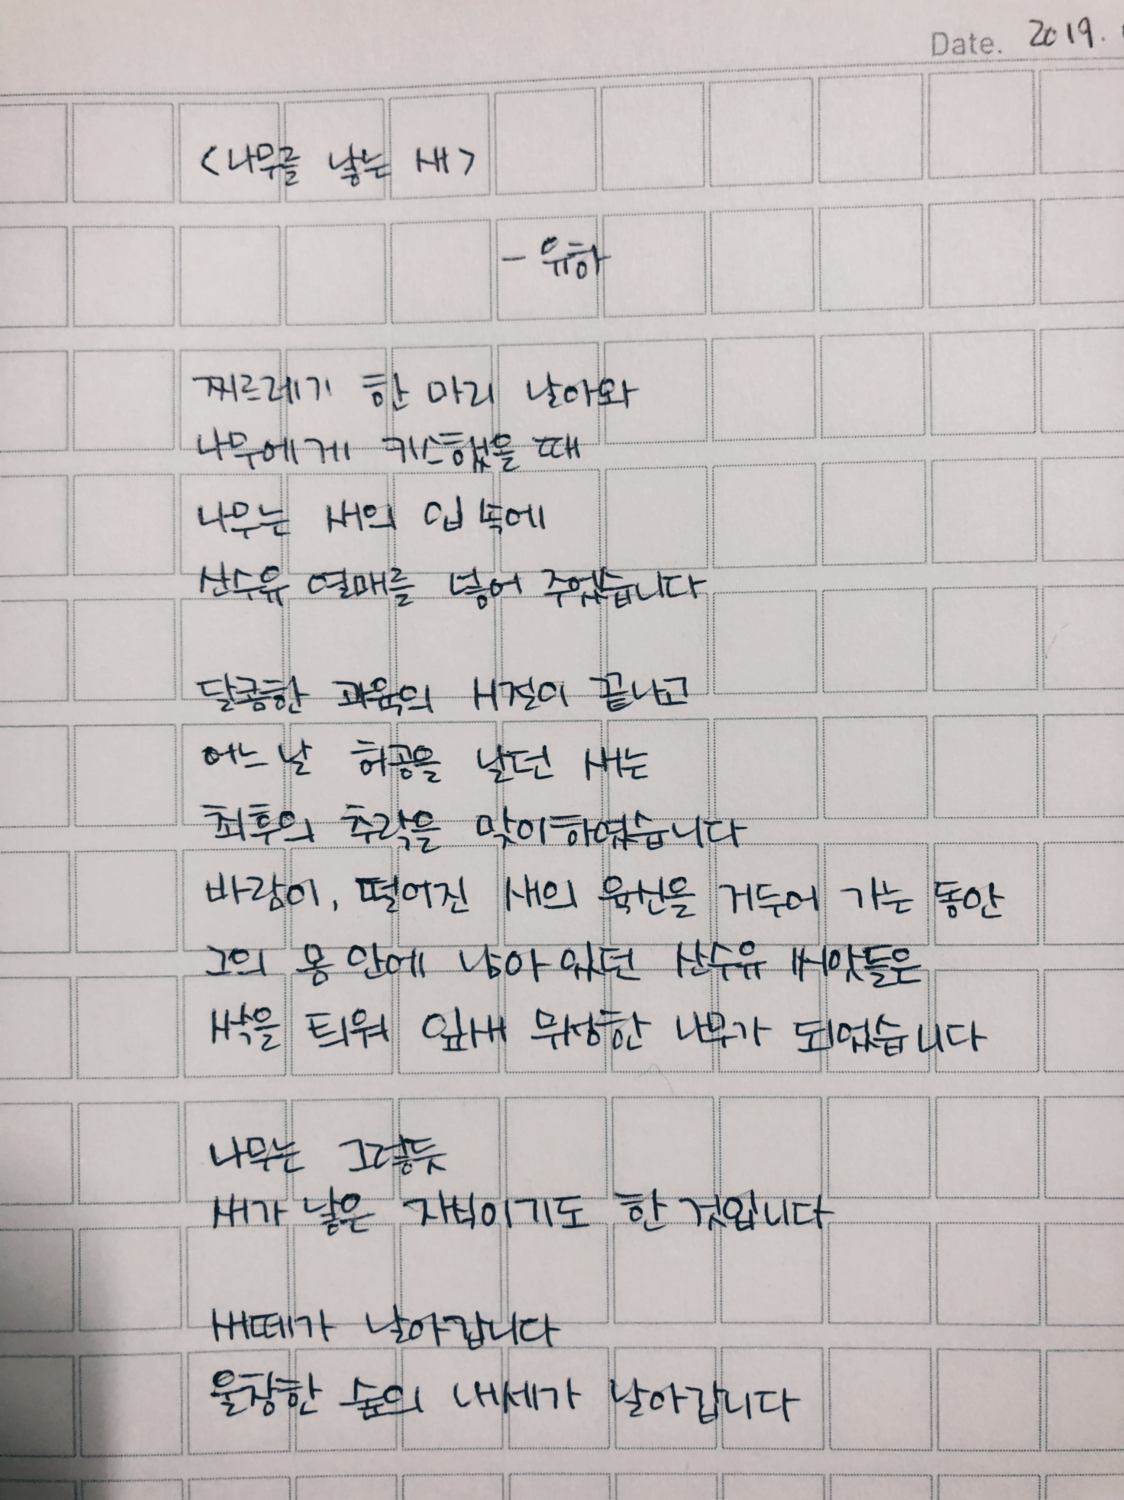 Date. 2019.
<나무를 낳는 새>
- 유하
찌르레기 한 마리 날아와
나무에게 키스했을 때
나무는 새의 입 속에
산수유 열매를 넣어 주었습니다
달콤한 과육의 시절이 끝나고
어느 날 허공을 날던 새는
최후의 추락을 맞이하였습니다
바람이, 떨어진 새의 육신을 거두어 가는 동안
그의 몸 안에 남아 있던 산수유 씨앗들은
싹을 틔워 잎새 무성한 나무가 되었습니다
나무는 그렇듯
새가 낳은 자식이기도 한 것입니다
새떼가 날아갑니다
울창한 숲의 내세가 날아갑니다